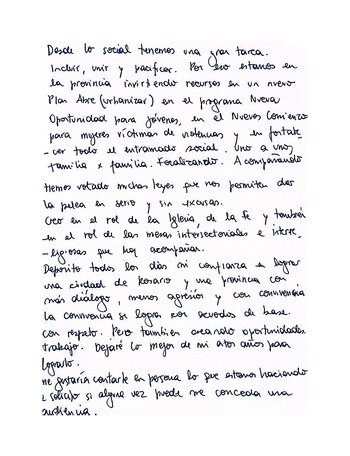 Desde lo social tenemos una gran tarea.
Incluir, unir y pacificar. Por eso estamos en
la provincia invirtiendo recursos en un nuevo
Plan Abre (urbanizar) en el programa Nueva
Oportunidad para jóvenes, en el Nuevos Comienzo
para mujeres víctimas de violencias y en fortale-
-cer todo el entramado social. Uno a uno,
familia x familia. Focalizando. Acompañando
Hemos votado muchas leyes que nos permiten dar
la pelea en serio y sin excusas.
Creo en el rol de la Iglesia, de la fe y también
en el rol de las mesas intersectoriales e interre-
-ligiosas que hay acompañar.
Deposito todos los días mi confianza en lograr
una ciudad de Rosario y una provincia con
más diálogo, menos agresión y con convivencia
la convivencia se logra con acuerdos de base.
con respeto. Pero también creando oportunidades.
trabajo. Dejaré lo mejor de mi años para
lograrlo.
me gustaría contarle en persona lo que estamos haciendo
solicito si alguna vez puede me conceda una
audiencia.